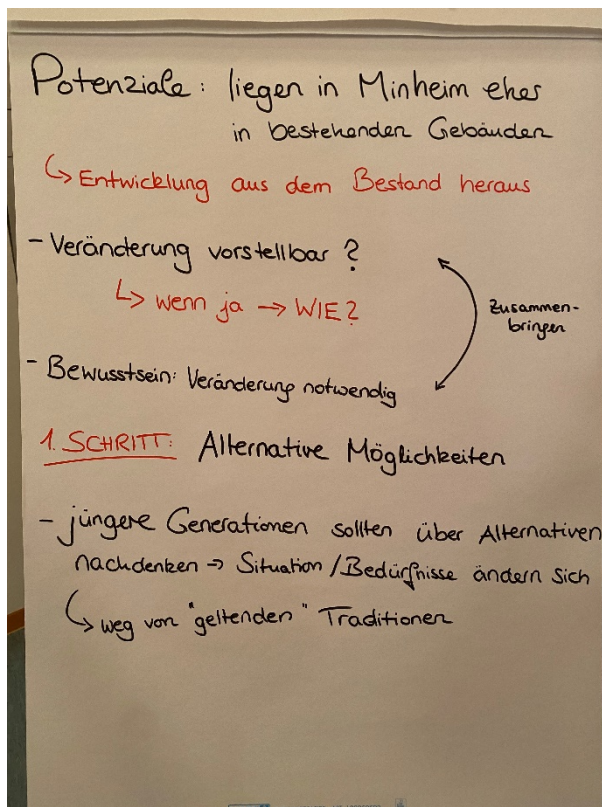 Potenziale: liegen in Minheim eher
in bestehenden Gebäuden
↳ Entwicklung aus dem Bestand heraus
- Veränderung vorstellbar?
↳ wenn ja → WIE?
Zusammen-
bringen
- Bewusstsein: Veränderung notwendig
1. SCHRITT: Alternative Möglichkeiten
- jüngere Generationen sollten über Alternativen
nachdenken → Situation / Bedürfnisse ändern sich
↳ weg von "geltenden" Traditionen